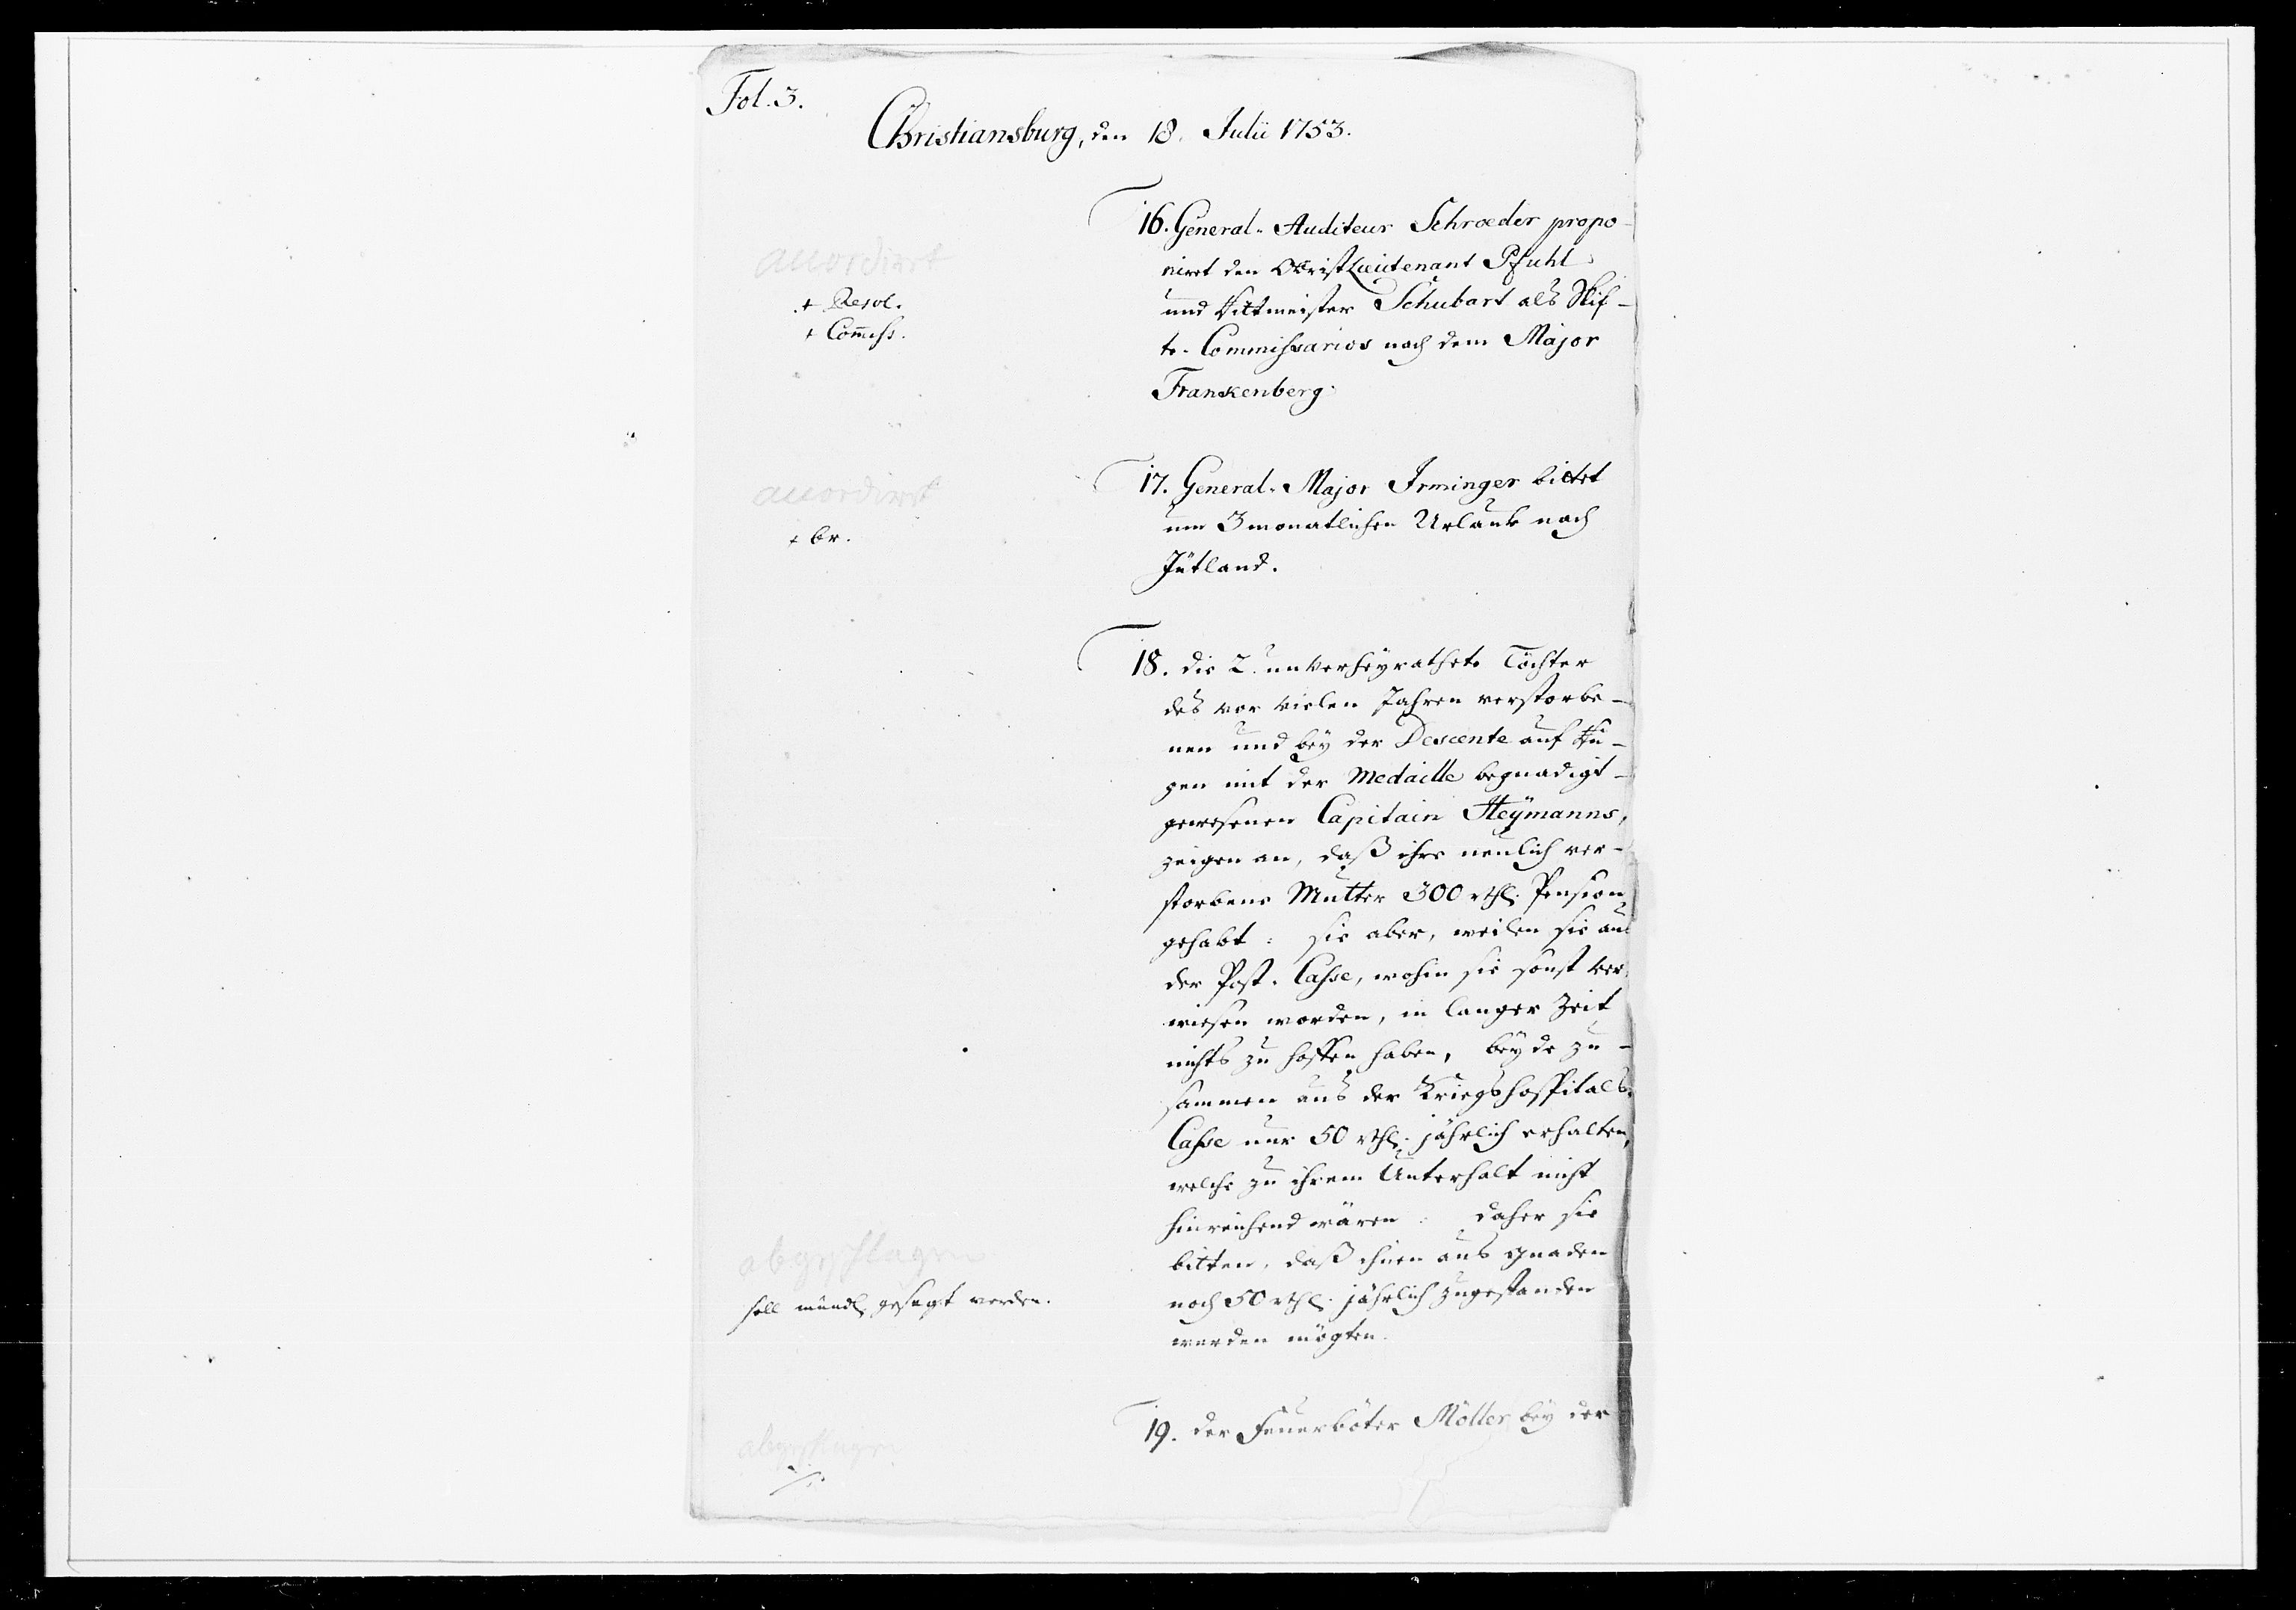 Fol. 3.
Christiansburg, den 18. Julii 1753.
16. General-Auditeur Schroeder propo-
niret den ObristLieutenant Pfuhl
und Rittmeister Schubart als Stif-
ts-Commissarios nach dem Major
Frankenberg.
accordirt
+ Resol.
+ Com̄iss.
17. General-Major Irminger bittet
um 3 monatlichen Urlaub nach
Jütland.
accordirt
+ br.
18. die 2. unverheyrathete Töchter
des vor vielen Jahren verstorbe-
nen und bey der Descente auf Rü-
gen mit der Medaille begnadigt-
gewesenen Capitain Heÿmanns,
zeigen an, daß ihre neulich ver-
storbene Mutter 300 rthl. Pension
gehabt: sie aber, weilen sie aus
der Post-Casse, wohin sie sonst ver-
wiesen worden, in langer Zeit
nichts zu hoffen haben, beyde zu-
sammen aus der Kriegshospitals-
Casse nur 50 rthl. jährlich erhalten,
welche zu ihrem Unterhalt nicht
hinreichend wären: daher sie
bitten, daß ihnen aus Gnaden
noch 50 rthl. jährlich zugestanden
werden mögten.
abgeschlagen
soll mündl. gesagt werden.
19. der Feuerböter Möller bey der
abgeschlagen